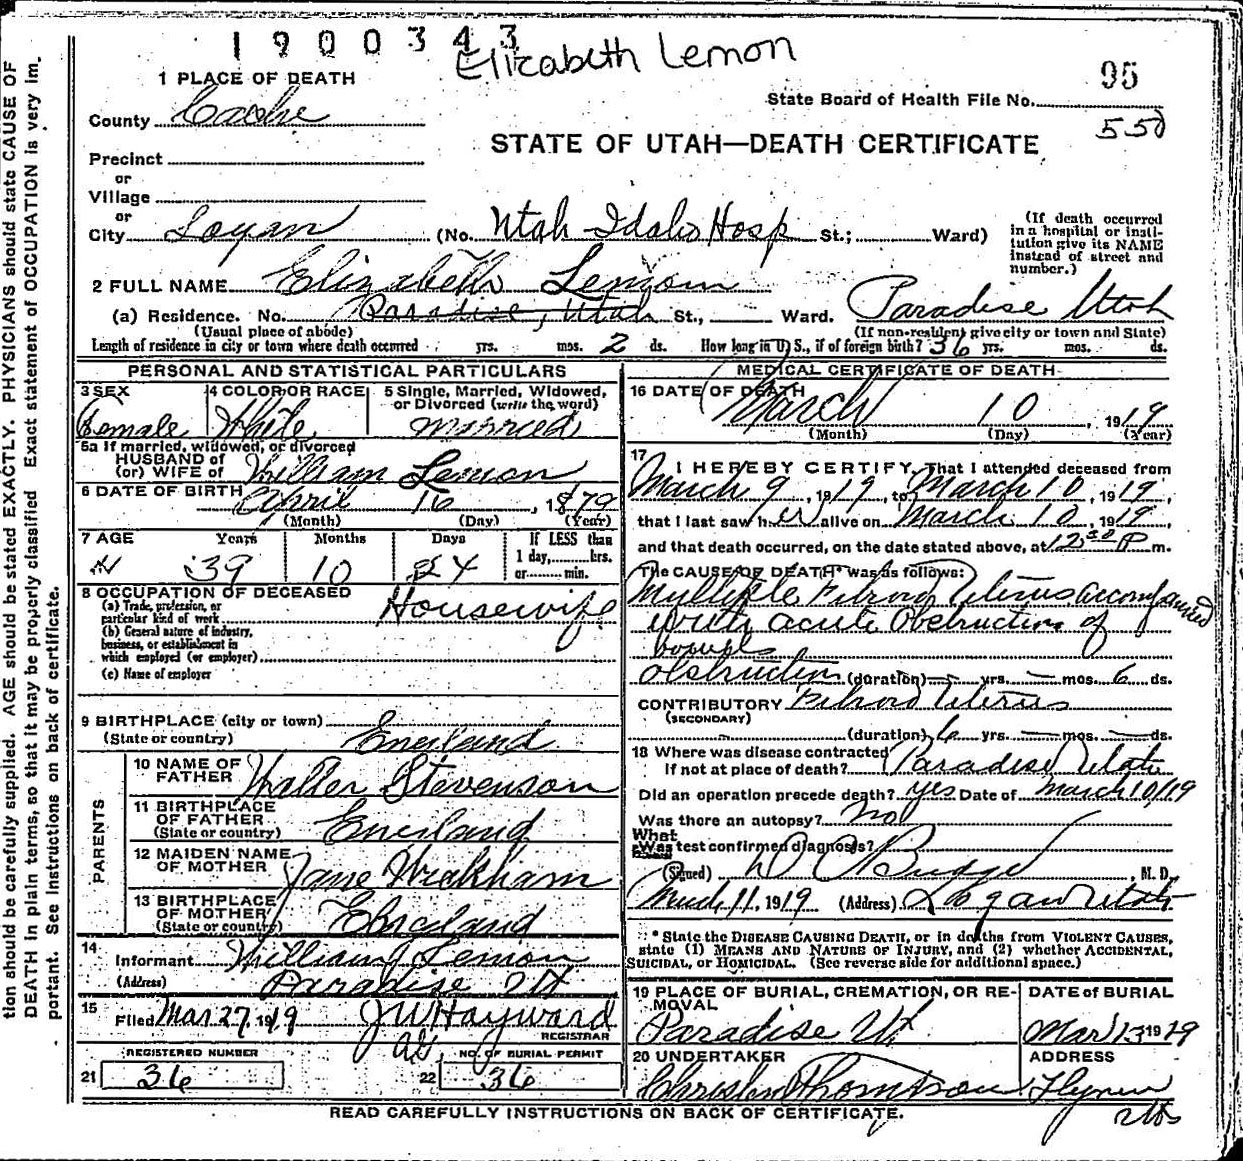 1900343
Elizabeth Lemon
95
State Board of Health File No.
550
1 PLACE OF DEATH
County Cache
STATE OF UTAH—DEATH CERTIFICATE
Precinct
or
Village
or
City Logan (No. Utah-Idaho Hosp St.; Ward)
(If death occurred in a hospital or institution give its NAME instead of street and number.)
2 FULL NAME Elizabeth Lemon
(a) Residence. No. Paradise, Utah St., Ward. Paradise Utah
(Usual place of abode) (If non-resident give city or town and State)
Length of residence in city or town where death occurred yrs. mos. 2 ds. How long in U.S., if of foreign birth? 36 yrs. mos. ds.
PERSONAL AND STATISTICAL PARTICULARS
3 SEX Female
4 COLOR OR RACE White
5 Single, Married, Widowed, or Divorced (write the word) Married
5a If married, widowed, or divorced
HUSBAND of
(or) WIFE of William Lemon
6 DATE OF BIRTH April 16, 1879
(Month) (Day) (Year)
7 AGE Years Months Days If LESS than
39 10 24 1 day, hrs.
or min.
8 OCCUPATION OF DECEASED
(a) Trade, profession, or particular kind of work Housewife
(b) General nature of industry, business, or establishment in which employed (or employer)
(c) Name of employer
9 BIRTHPLACE (city or town)
(State or country) England
PARENTS
10 NAME OF FATHER Walter Stevenson
11 BIRTHPLACE OF FATHER (State or country) England
12 MAIDEN NAME OF MOTHER Jane Wickham
13 BIRTHPLACE OF MOTHER (State or country) England
14 Informant William Lemon
(Address) Paradise Ut
15 Filed Mar 27, 1919 J W Hayward
REGISTRAR
REGISTERED NUMBER
21 36
NO. OF BURIAL PERMIT
22 36
MEDICAL CERTIFICATE OF DEATH
16 DATE OF DEATH March 10, 1919
(Month) (Day) (Year)
17 I HEREBY CERTIFY, That I attended deceased from
March 9, 1919, to March 10, 1919,
that I last saw her alive on March 10, 1919,
and that death occurred, on the date stated above, at 12 30 P m.
The CAUSE OF DEATH* was as follows:
Multiple Fibroid Uterus accompanied
with acute Obstruction of
bowels
Obstruction (duration) — yrs. — mos. 6 ds.
CONTRIBUTORY Fibroid Uterus
(SECONDARY)
(duration) 6 yrs. — mos. — ds.
18 Where was disease contracted
If not at place of death? Paradise Utah
Did an operation precede death? yes Date of March 10/19
Was there an autopsy? No
What test confirmed diagnosis?
(Signed) D C Budge, M. D.
March 11, 1919 (Address) Logan Utah
* State the DISEASE CAUSING DEATH, or in deaths from VIOLENT CAUSES,
state (1) MEANS AND NATURE OF INJURY, and (2) whether ACCIDENTAL,
SUICIDAL, or HOMICIDAL. (See reverse side for additional space.)
19 PLACE OF BURIAL, CREMATION, OR REMOVAL Paradise Ut.
DATE of BURIAL Mar 13 1919
20 UNDERTAKER
ADDRESS
READ CAREFULLY INSTRUCTIONS ON BACK OF CERTIFICATE.
tion should be carefully supplied. AGE should be stated EXACTLY. PHYSICIANS should state CAUSE OF
DEATH in plain terms, so that it may be properly classified. Exact statement of OCCUPATION is very im-
portant. See instructions on back of certificate.